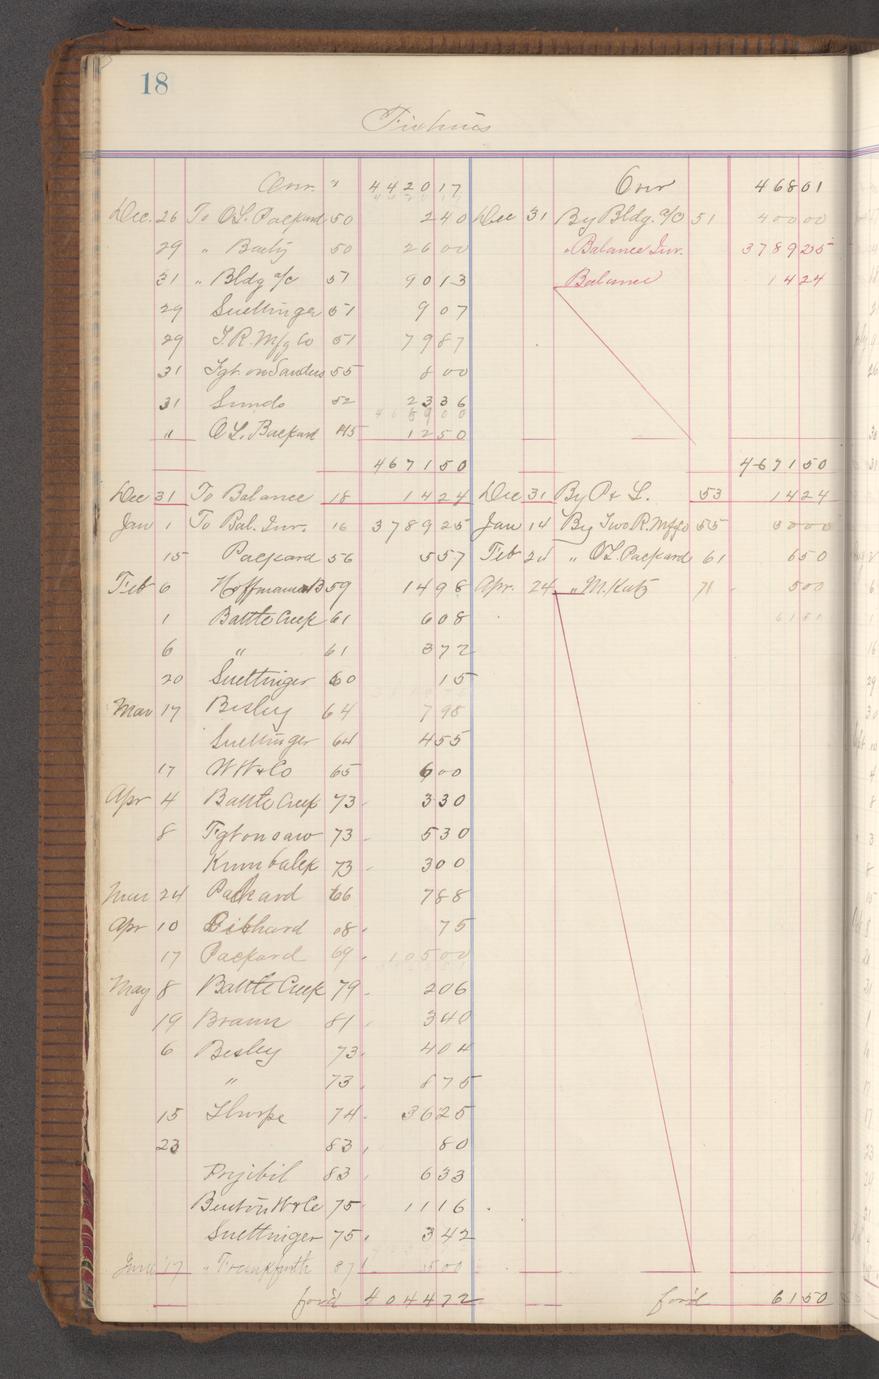 18
Fixtures
Over. " 442017 Over 46801
Dec. 26 To O.L. Packard 50 240 Dec 31 By Bldg. a/c 51 40000
29 " Barty 50 2600 " Balance Inv. 378925
31 " Bldg a/c 51 9013 Balance 1424
29 Suettinger 51 907
29 T.R. Mfg Co 51 7987
31 Fgt. on Sanders 55 800
31 Sunds 52 2336
" O.L. Packard 45 1250
467150 467150
Dec 31 To Balance 18 1424 Dec 31 By P & L. 53 1424
Jan 1 To Bal. Inv. 16 378925 Jan 14 By Two R. Mfg Co 55 5000
15 Packard 56 557 Feb 21 " O.L. Packard 61 650
Feb 6 Hoffmann B 59 1498 Apr. 24 " M. Katz 71 500
1 Battle Creek 61 608 6150
6 " 61 372
20 Suettinger 60 15
Mar 17 Besley 64 798
Suettinger 64 455
17 W W & Co 65 600
Apr 4 Battle Creek 73 330
8 Fgt on saw 73 530
73 300
Mar 24 Packard 66 788
Apr 10 Gibhard 68 75
17 Packard 69 10500
May 8 Battle Creek 79 206
19 Braun 81 340
6 Besley 73 404
" 73 875
15 Thorpe 74 3625
23 83 80
Pryibil 83 633
Benton W & Co 75 1116
Suettinger 75 342
June 17 " Frankfurth 87 500
ford 404472 ford 6150